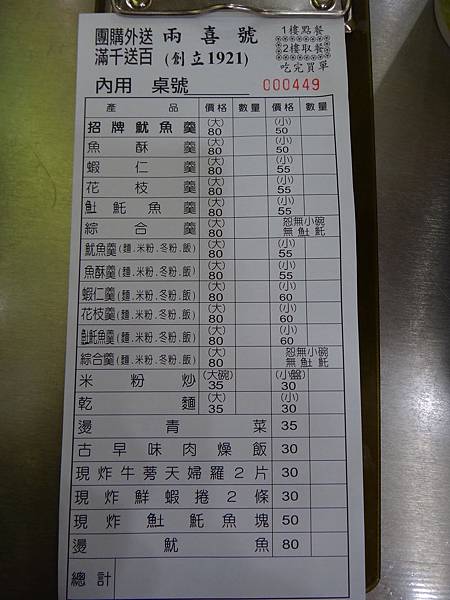 團購外送 兩喜號 1樓點餐
滿千送百 (創立1921) 2樓取餐
內用 桌號 吃完買單
000449
產品 價格 數量 價格 數量
招牌魷魚羹 (大)80 (小)50
魚酥羹 (大)80 (小)50
蝦仁羹 (大)80 (小)55
花枝羹 (大)80 (小)55
𩵚魠魚羹 (大)80 (小)55
綜合羹 (大)80 恕無小碗 無𩵚魠
魷魚羹(麵.米粉.冬粉.飯) (大)80 (小)55
魚酥羹(麵.米粉.冬粉.飯) (大)80 (小)55
蝦仁羹(麵.米粉.冬粉.飯) (大)80 (小)60
花枝羹(麵.米粉.冬粉.飯) (大)80 (小)60
𩵚魠魚羹(麵.米粉.冬粉.飯) (大)80 (小)60
綜合羹(麵.米粉.冬粉.飯) (大)80 恕無小碗 無𩵚魠
米粉炒 (大碗)35 (小盤)30
乾麵 (大)35 (小)30
燙青菜 35
古早味肉燥飯 30
現炸牛蒡天婦羅2片 30
現炸鮮蝦捲2條 30
現炸𩵚魠魚塊 50
燙魷魚 80
總計